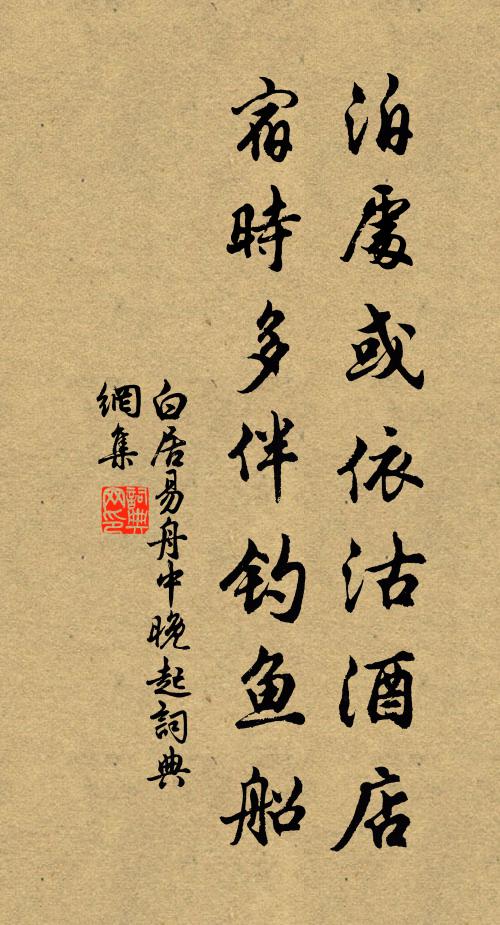 泊處或依沽酒店
宿時多伴钓鱼船
白居易舟中晚起詞典
網集
詞典网印